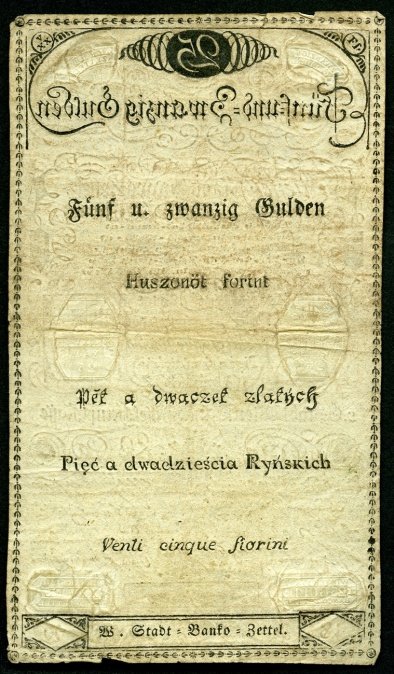 XXV
FL
25
Fünf und-Zwanzig Gulden
Fünf u. zwanzig Gulden
Huszonöt forint
Pět a dwaczet zlatých
Pięć a dwadzieścia Ryńskich
Venti cinque fiorini
W. Stadt = Banko = Zettel.